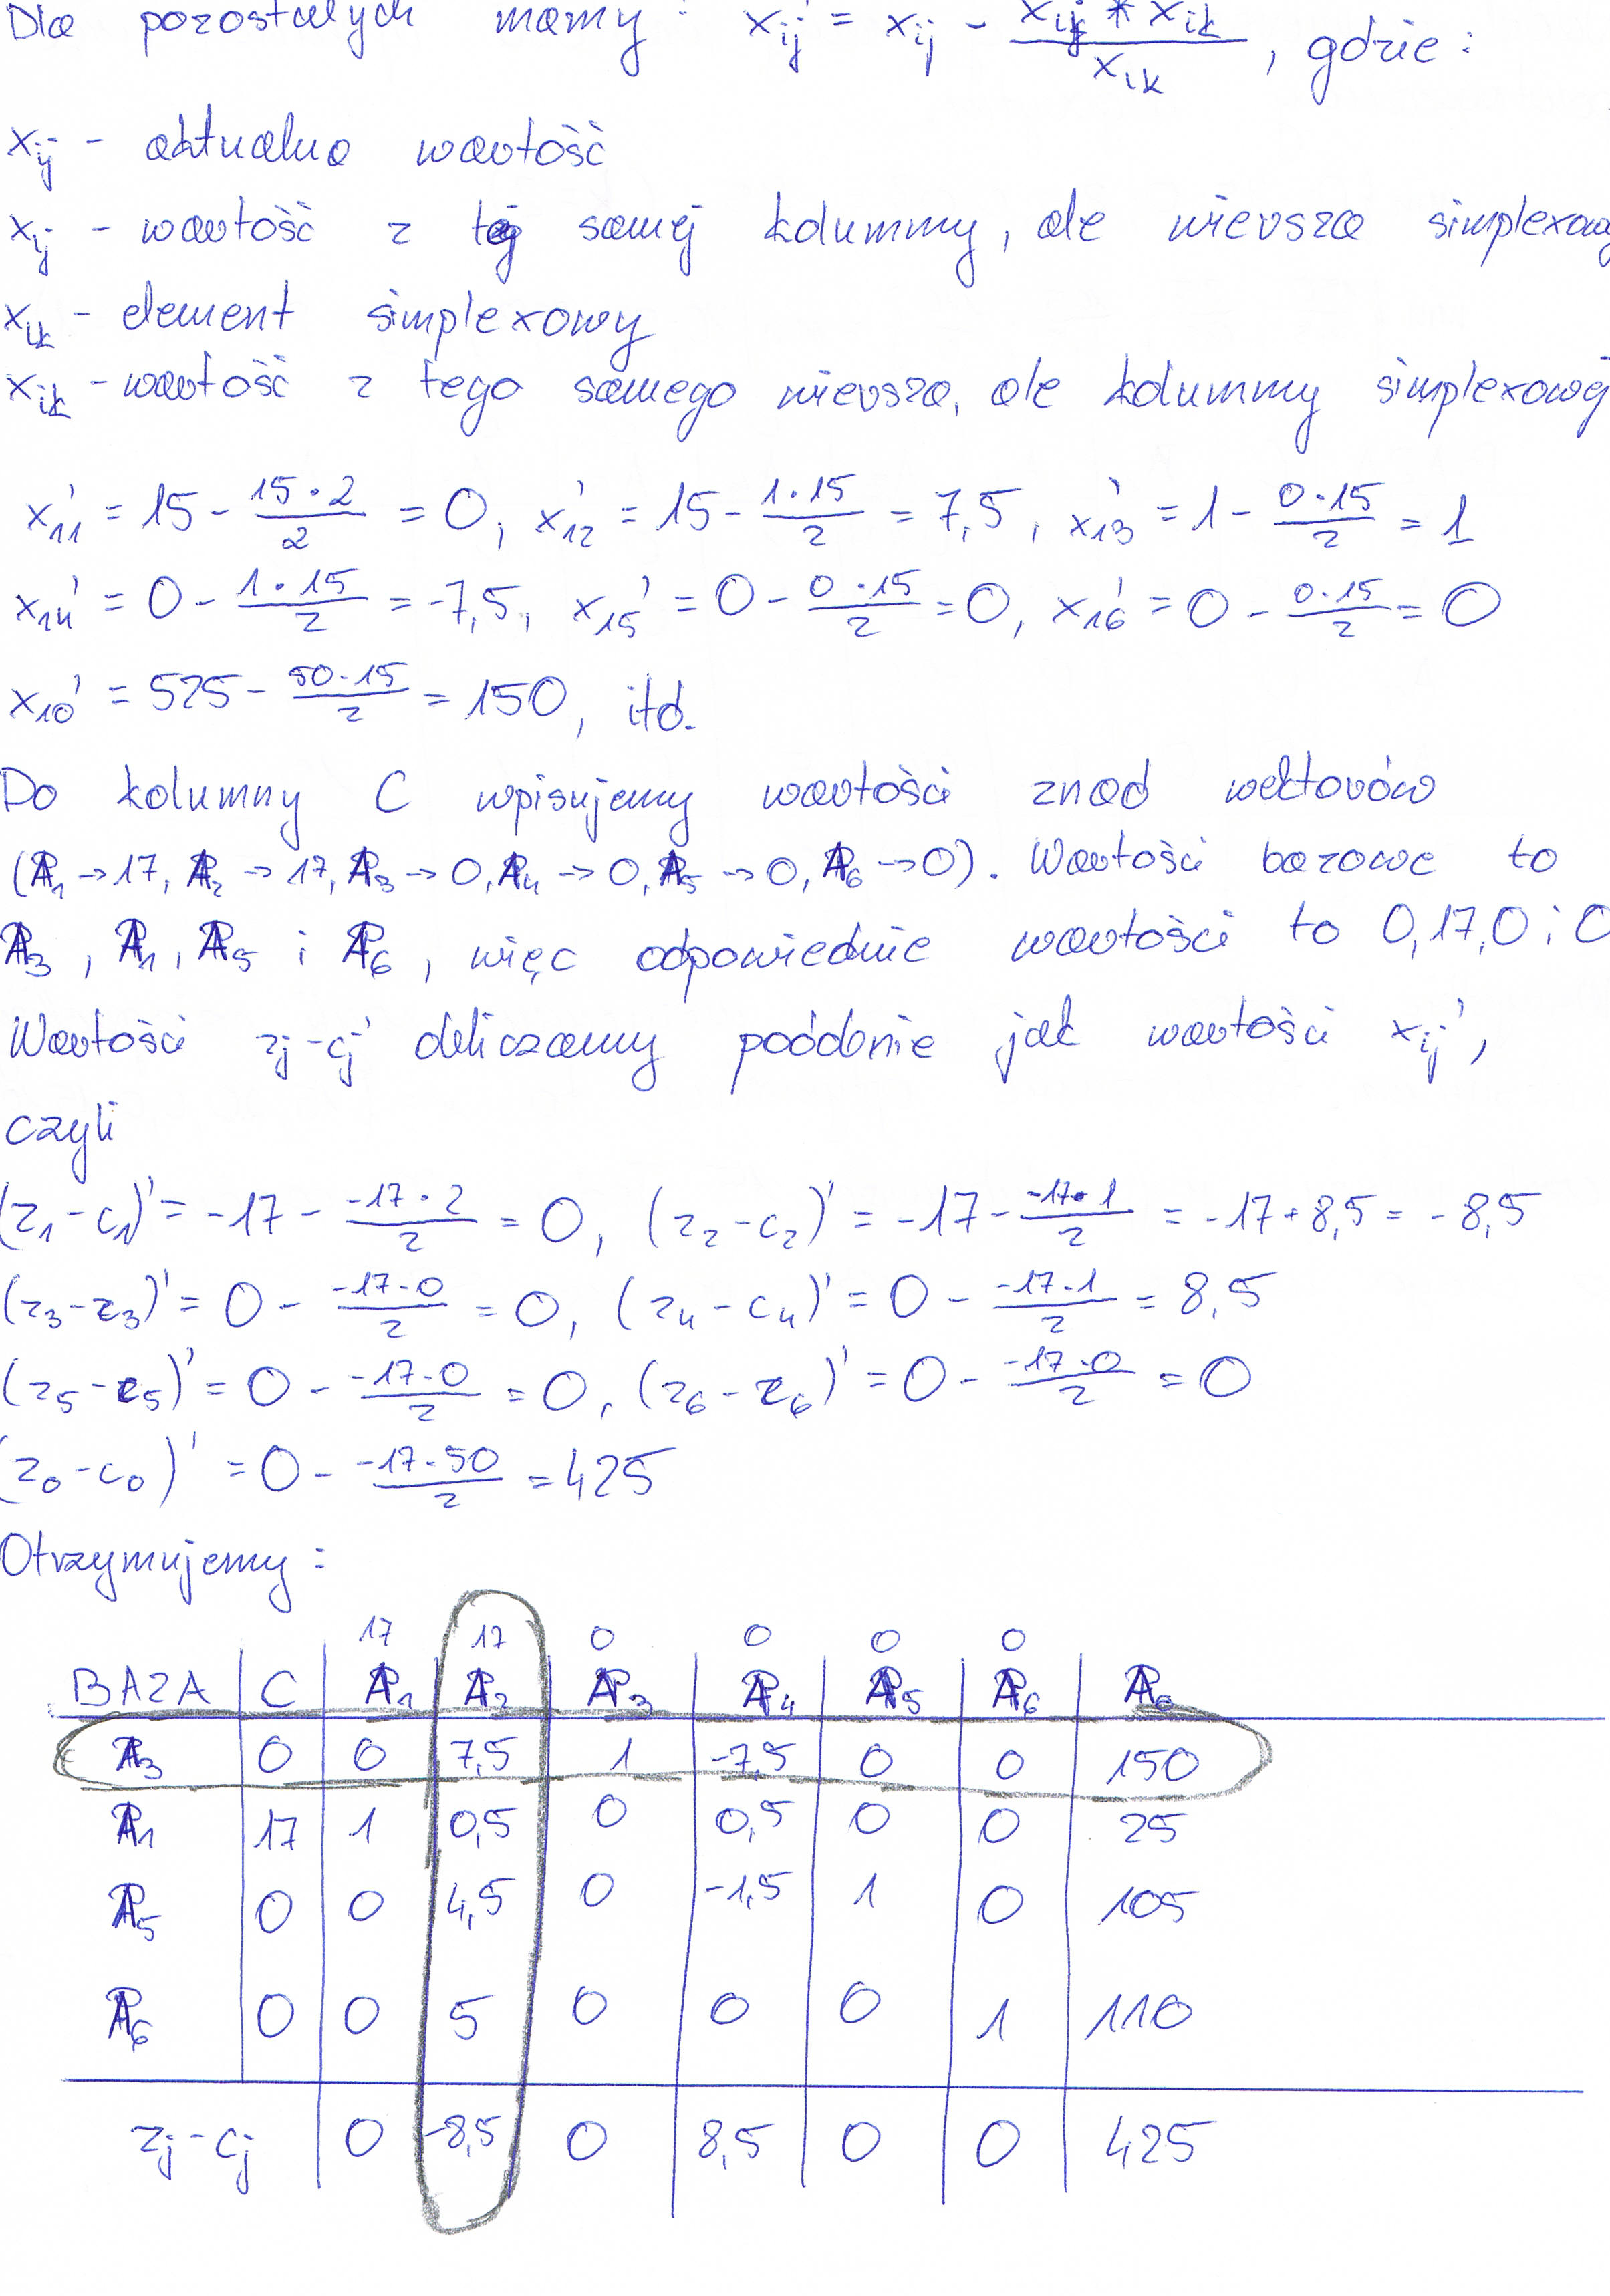 Dla pozostałych mamy: xij' = xij - (xij * xik) / xik, gdzie:
xij - aktualna wartość
xij - wartość z tej samej kolumny, ale wiersza simplexowego
xik - element simplexowy
xik - wartość z tego samego wiersza, ale kolumny simplexowej
x11' = 15 - (15·2)/2 = 0, x12' = 15 - (1·15)/2 = 7,5, x13' = 1 - (0·15)/2 = 1
x14' = 0 - (1·15)/2 = -7,5, x15' = 0 - (0·15)/2 = 0, x16' = 0 - (0·15)/2 = 0
x10' = 525 - (50·15)/2 = 150, itd.
Do kolumny C wpisujemy wartości znad wektorów
(P1 → 17, P2 → 17, P3 → 0, P4 → 0, P5 → 0, P6 → 0). Wartości bazowe to
P3, P1, P5 i P6, więc odpowiednie wartości to 0, 17, 0 i 0
Wartości zj-cj' obliczamy podobnie jak wartości xij',
czyli
(z1-c1)' = -17 - (-17·2)/2 = 0, (z2-c2)' = -17 - (-17·1)/2 = -17+8,5 = -8,5
(z3-z3)' = 0 - (-17·0)/2 = 0, (z4-c4)' = 0 - (-17·1)/2 = 8,5
(z5-c5)' = 0 - (-17·0)/2 = 0, (z6-z6)' = 0 - (-17·0)/2 = 0
(z0-c0)' = 0 - (-17·50)/2 = 425
Otrzymujemy:
17 17 0 0 0 0
BAZA C P1 P2 P3 P4 P5 P6 P0
P3 0 0 7,5 1 -7,5 0 0 150
P1 17 1 0,5 0 0,5 0 0 25
P5 0 0 4,5 0 -1,5 1 0 105
P6 0 0 5 0 0 0 1 110
zj-cj 0 -8,5 0 8,5 0 0 425